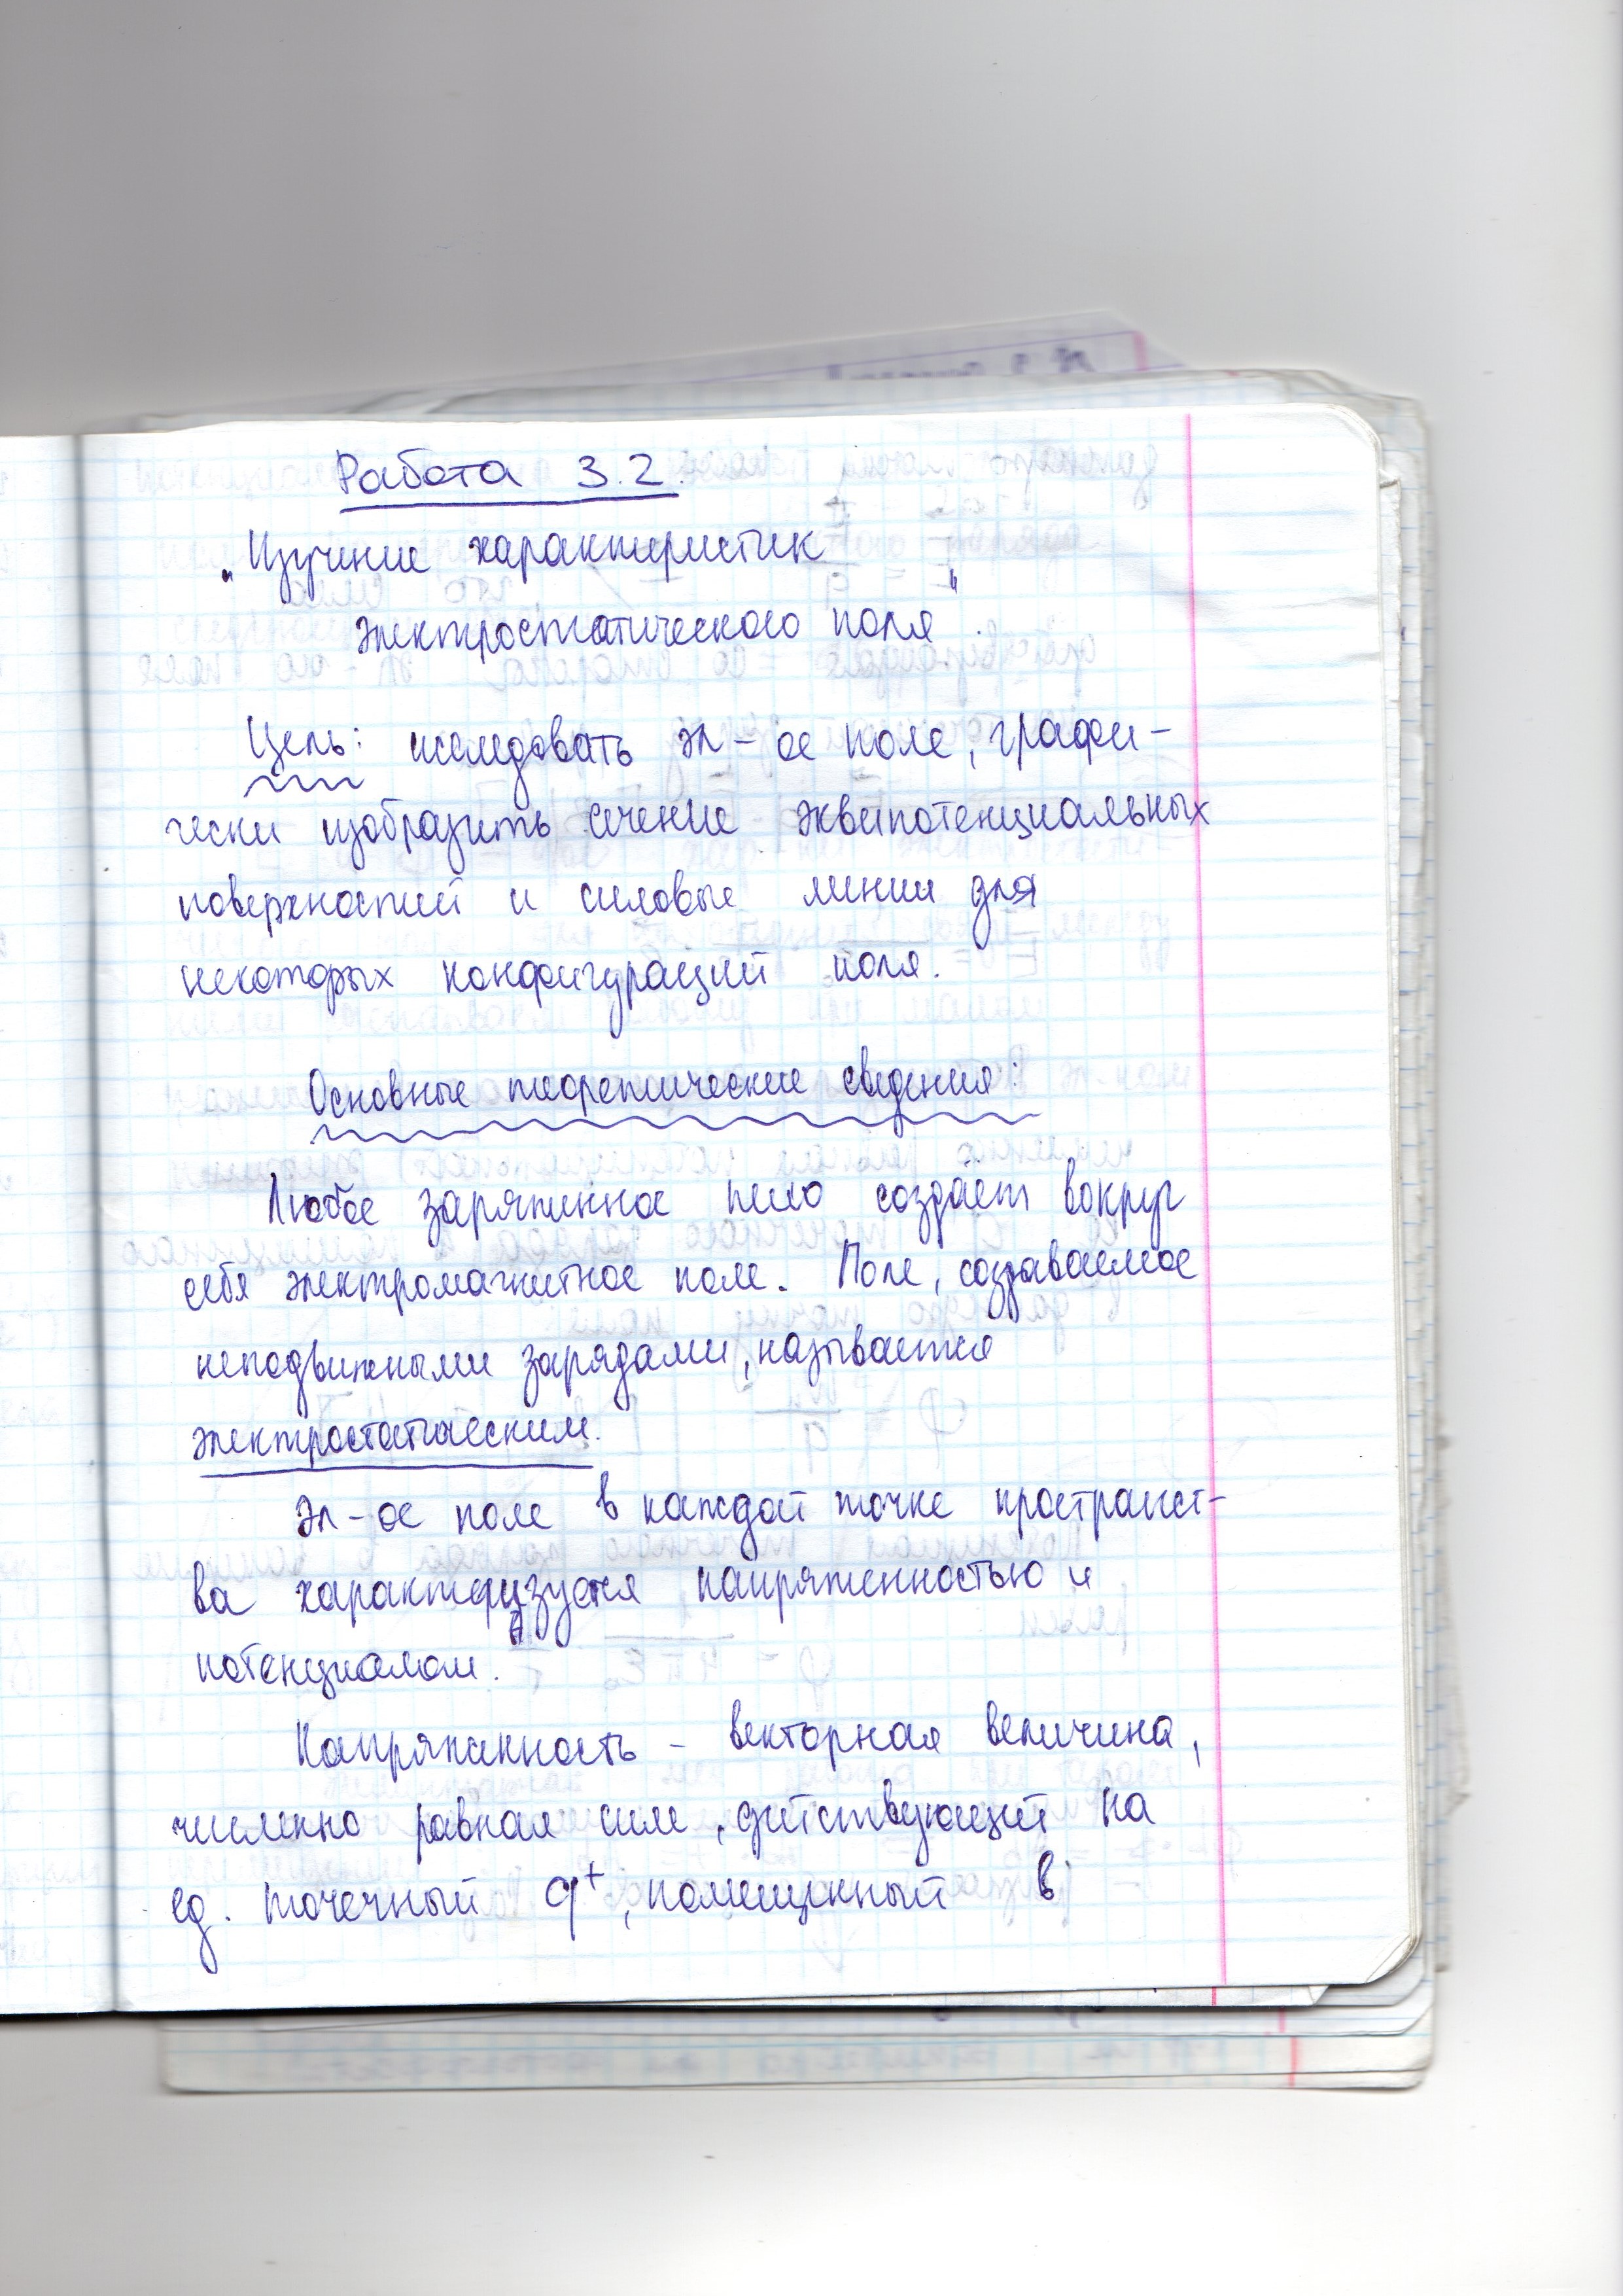 Работа 3.2.
„Изучение характеристик
электростатического поля".
Цель: исследовать эл-ое поле, графи-
чески изобразить сечение эквипотенциальных
поверхностей и силовые линии для
некоторых конфигураций поля.
Основные теоретические сведения:
Любое заряженное тело создаёт вокруг
себя электромагнитное поле. Поле, создаваемое
неподвижными зарядами, называется
электростатическим.
Эл-ое поле в каждой точке пространст-
ва характеризуется напряженностью и
потенциалом.
Напряженность - векторная величина,
численно равная силе, действующей на
ед. точечный q⁺, помещенный в